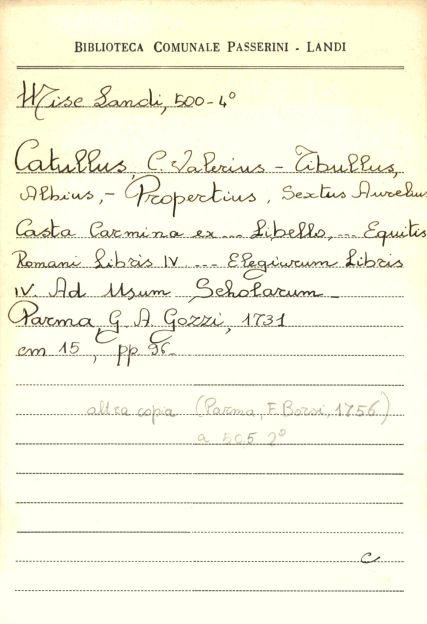 BIBLIOTECA COMUNALE PASSERINI - LANDI
Mise Landi, 500-4°
Catullus, C. Valerius - Tibullus,
Albius, - Propertius, Sextus Aurelius
Casta Carmina ex ... Libello, ... Equitis
Romani Libris IV ... Elegiurum Libris
IV. Ad Usum Scholarum -
Parma, G. A. Gozzi, 1731
cm 15, pp 96.
altra copia (Parma, F. Borsi, 1756)
a 505 2°
C